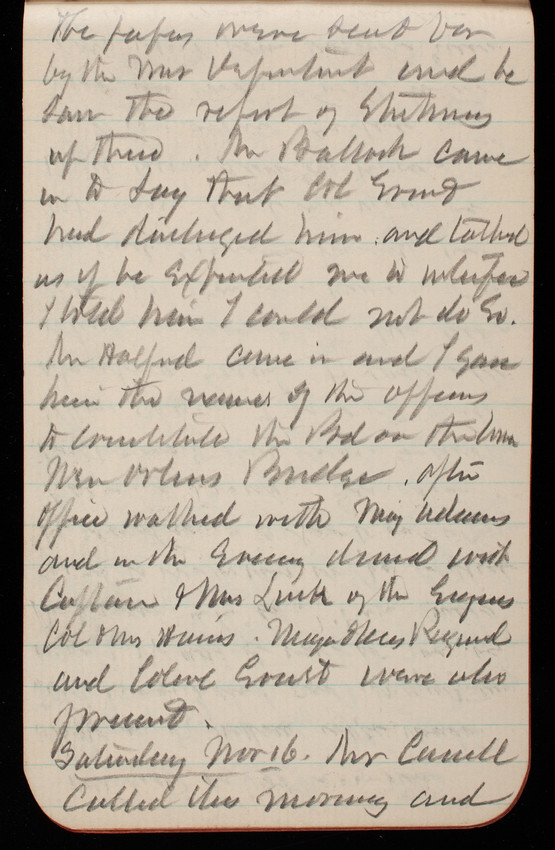 The papers were sent
by the War Department and he
saw the report of
up there. Mr Bullock came
in to say that Col Ernst
had discharged him, and talked
as if he expected me to interfere
I told him I could not do so.
Mr Halford came in and I gave
him the names of the officers
to constitute the Bd on the
New Orleans Bridge. After
office walked with Maj Adams
and in the Evening dined with
Captain & Mrs of the Engrs
Col & Mrs Hains.
and Col Ernst were also
present.
Saturday Nov 16. Mr
called this morning and